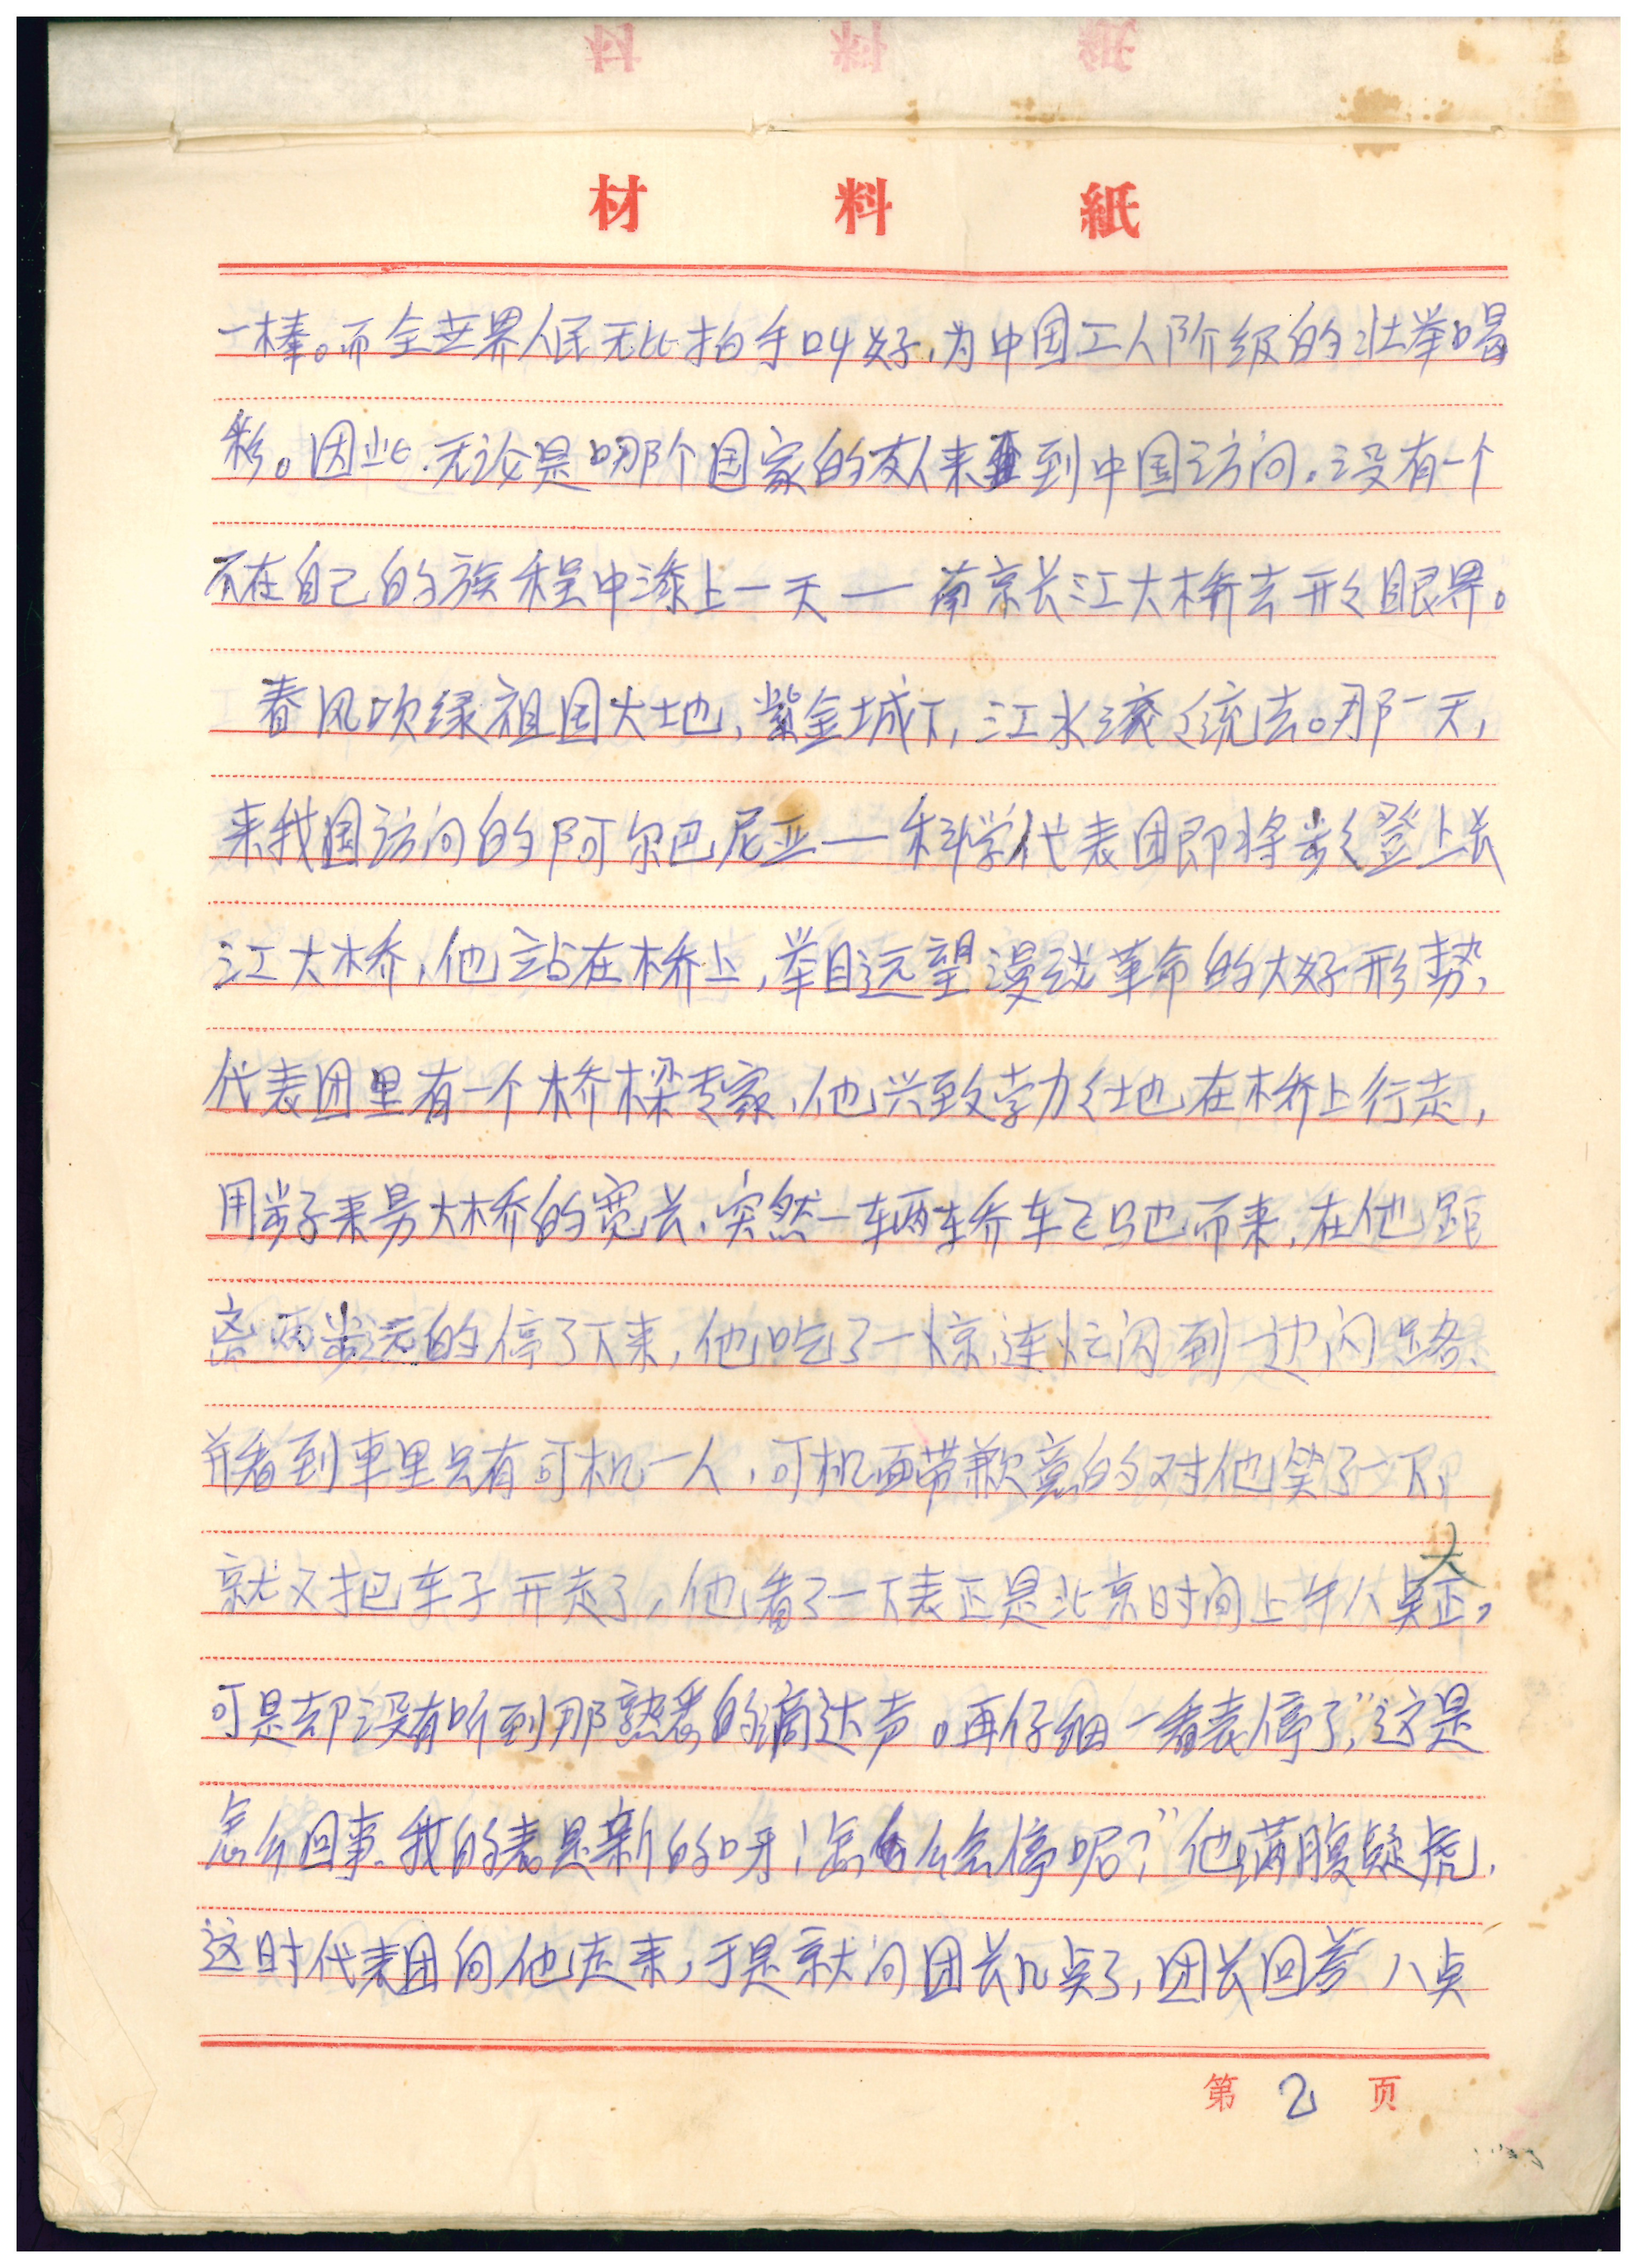 材料紙
一棒。而全世界人民无比拍手叫好,为中国工人阶级的壮举喝
彩。因此.无论是哪个国家的友人来到中国访问.没有一个
不在自己的旅程中添上一天—南京长江大桥去开々眼界。
春风吹绿祖国大地,紫金城下,江水滚々流去。那一天,
来我国访问的阿尔巴尼亚—科学代表团即将步々登上长
江大桥,他站在桥上,举目远望漫谈革命的大好形势,
代表团里有一个桥樑专家,他兴致勃々地在桥上行走,
用步子来量大桥的宽长.突然一辆轿车飞驰而来,在他距
离两步远的停了下来,他吃了一惊连忙闪到一边闪路.
并看到車里只有司机一人,司机面带歉意的对他笑了一下,
就又把车子开走了,他看了一下表正是北京时间上午八点正,
可是却没有听到那熟悉的滴达声。再仔细一看表停了,“这是
怎么回事.我的表是新的呀!怎么会停呢?”他满腹疑虎.
这时代表团向他走来,于是就问团长几点了,团长回答八点
第 2 页